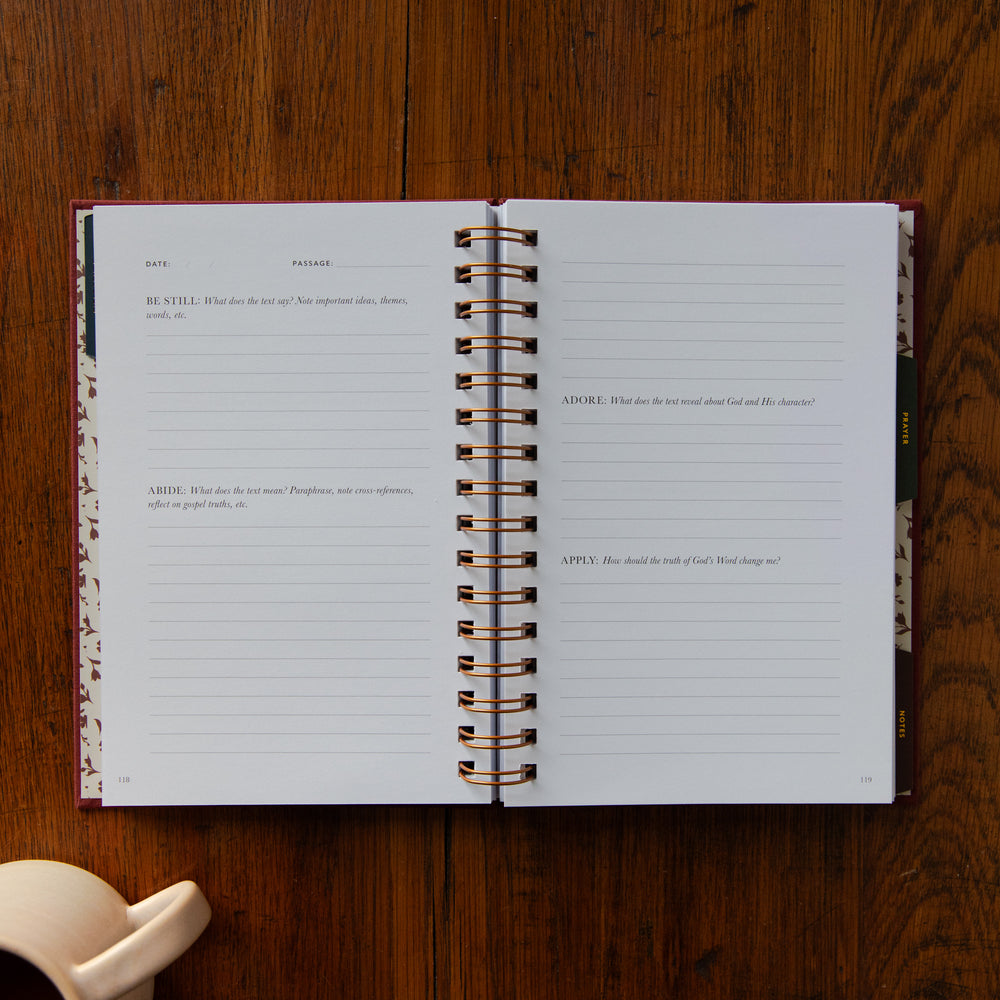 DATE: / / PASSAGE:
BE STILL: What does the text say? Note important ideas, themes,
words, etc.
ABIDE: What does the text mean? Paraphrase, note cross-references,
reflect on gospel truths, etc.
118
ADORE: What does the text reveal about God and His character?
APPLY: How should the truth of God's Word change me?
119
PRAYER
NOTES